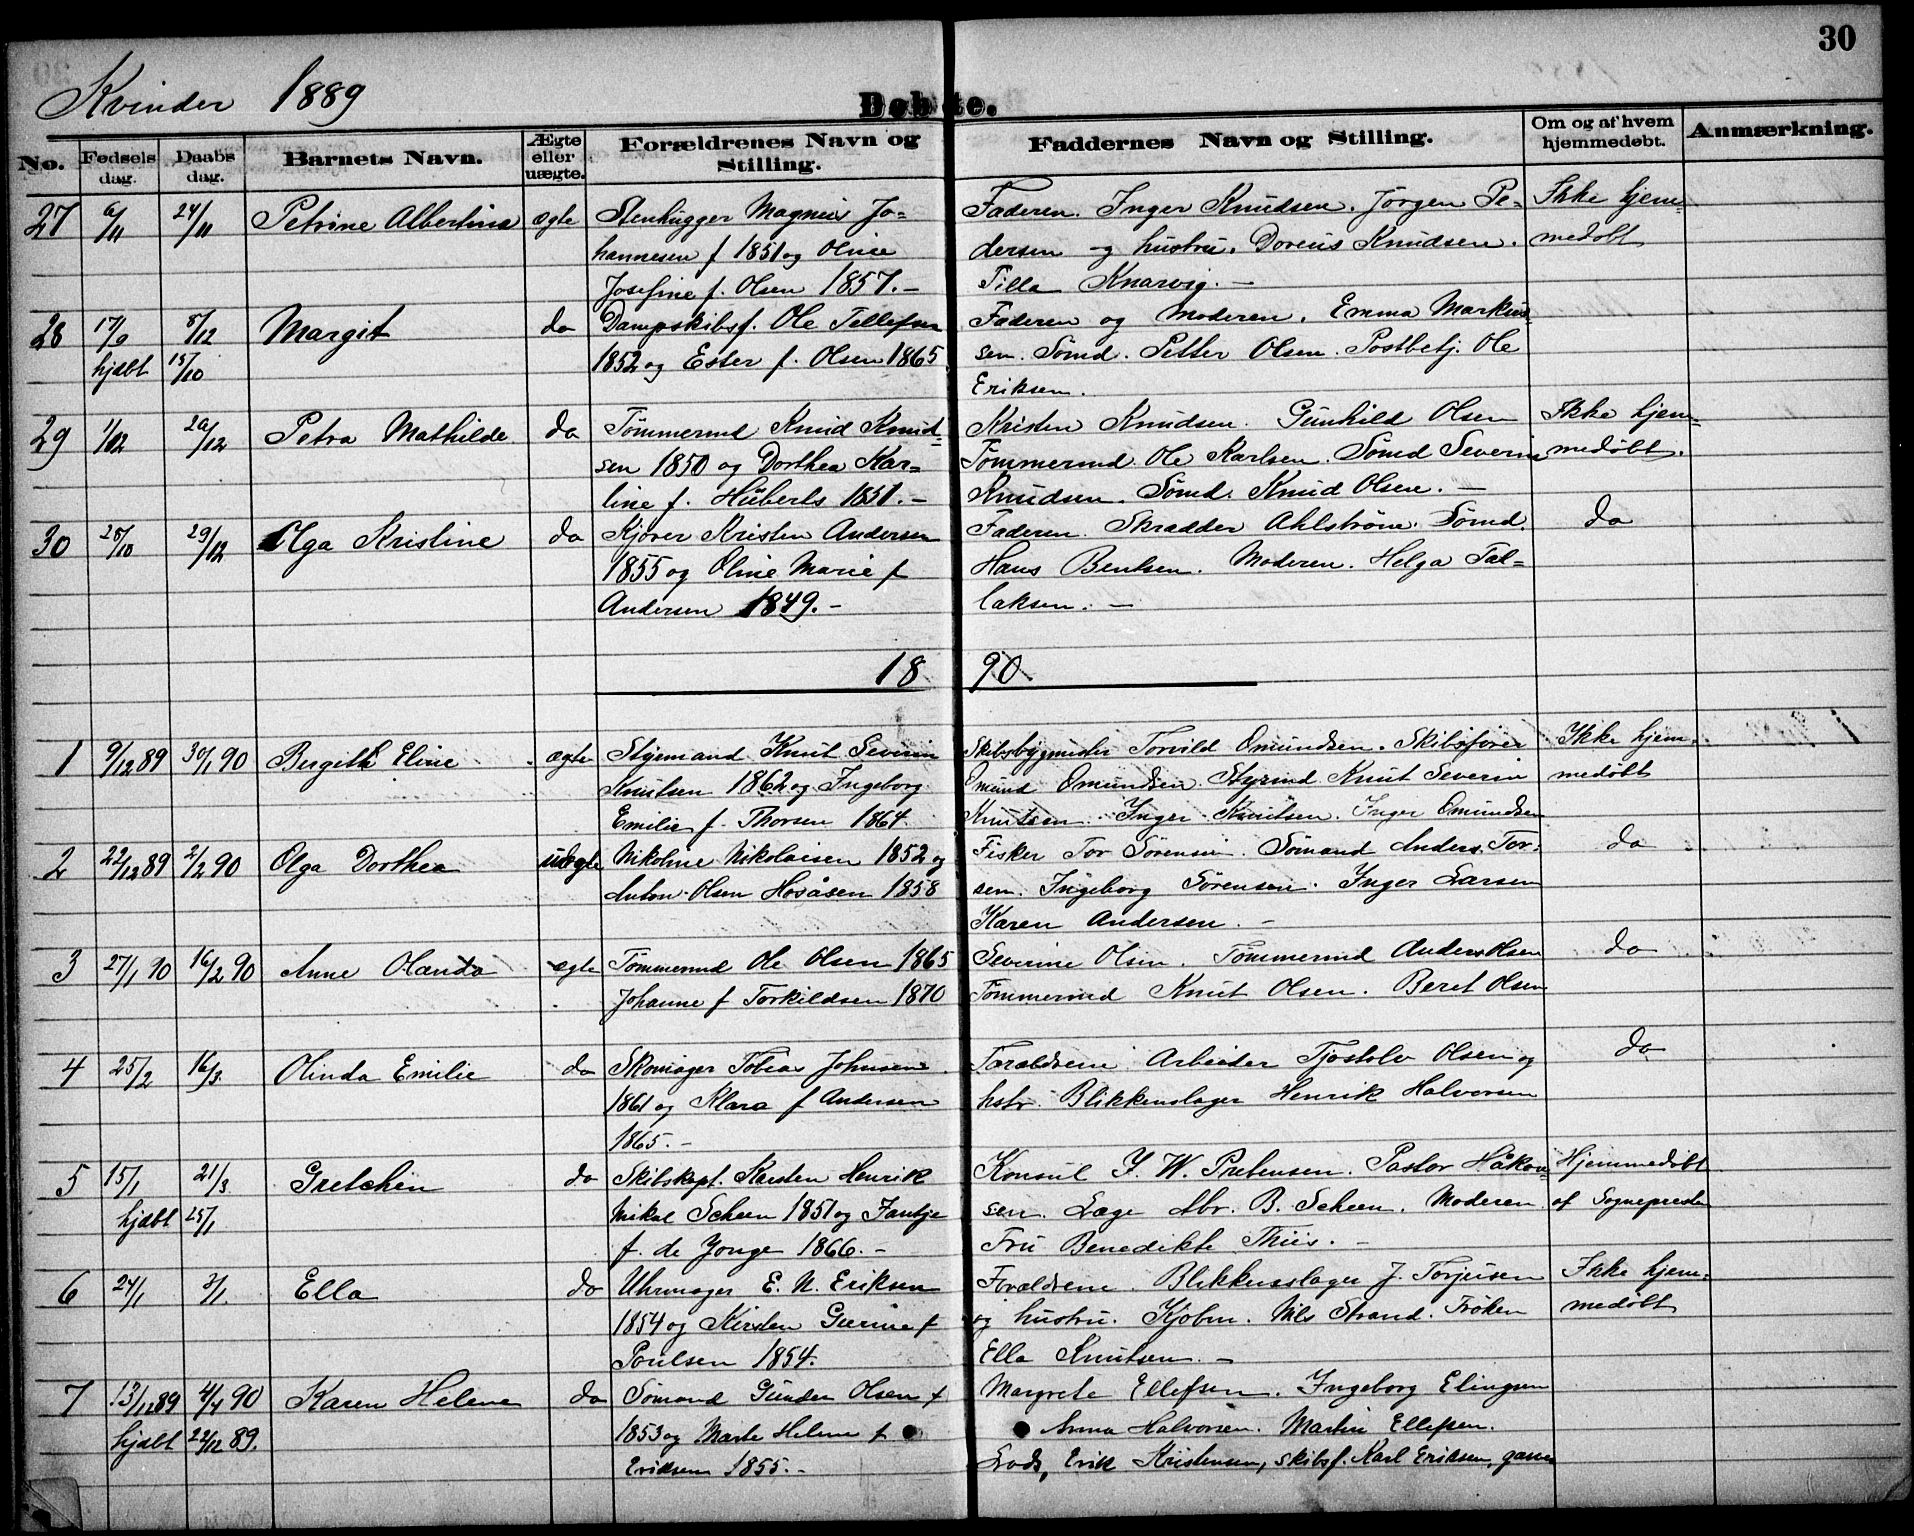 30
Kvinder 1889
Døbte.
No. Fødsels dag. Daabs dag. Barnets Navn. Ægte eller uægte. Forældrenes Navn og Stilling. Faddernes Navn og Stilling. Om og af hvem hjemmedøbt. Anmærkning.
27 6/11 24/11 Petrine Albertine ægte Stenhugger Magnus Jo- Faderen. Inger Knudsen. Jørgen Pe- Ikke hjem-
hannesen f 1851 og Oline dersen og hustru. Doreus Knudsen. medøbt
Josefine f. Olsen 1857.- Tilla Knarvig.-
28 17/9 8/12 Margit do Dampskibsf. Ole Tellefsen Faderen og Moderen. Emma Markus-
hjdbt 15/10 1852 og Ester f. Olsen 1865. sen. Sømd. Petter Olsen. Postbetj. Ole
Eriksen.
29 1/12 26/12 Petra Mathilde do Tømmermd Knud Knud- Kristen Knudsen. Gunhild Olsen Ikke hjem-
sen 1850 og Dorthea Kar- Tømmermd. Ole Karlsen. Sømd Severin medøbt.
line f. Huberts 1851.- Knudsen. Sømd. Knud Olsen.-
30 28/10 29/12 Olga Kristine do Kjører Kristen Andersen Faderen. Skrædder Ahlstrøm. Sømd. do
1855 og Oline Marie f Hans Bentsen. Moderen. Helga Tal-
Andersen 1849.- laksen.-
1890
1 9/12 89 30/1 90 Bergith Eline ægte Styrmand Knut Severin Skibsbygmester Torvild Omundsen. Skibsfører Ikke hjem-
Knutsen 1862 og Ingeborg Omund Omundsen. Styrmd Knut Severin medøbt
Emilie f. Thorsen 1864. Knutsen. Inger Knutsen. Inger Omundsen
2 22/12 89 2/2 90 Olga Dorthea uægte Nikoline Nikolaisen 1852 og Fisker Tor Sørensen. Sømand Anders Tor- do
Anton Olsen Hosåsen 1858 sen. Ingeborg Sørensen. Inger Larsen
Karen Andersen.-
3 27/1 90 16/2 90 Anne Olanda ægte Tømmermd Ole Olsen 1865 Severine Olsen. Tømmermd Anders Olsen do
Johanne f Torkildsen 1870 Tømmermd Knut Olsen. Beret Olsen
4 25/2 16/3 Olinda Emilie do Skomager Tobias Johnsen Forældrene Arbeider Tjostolv Olsen og do
1861 og Klara f Andersen hstr. Blikkenslager Henrik Halvorsen
1865.-
5 15/1 21/3 Gretchen do Skibskapt. Karsten Henrik Konsul J. W. Prebensen. Pastor Håkon- Hjemmedøbt
hjdbt 25/1 Mikal Scheen 1851 og Jantje sen. Læge Abr. B. Scheen. Moderen. af Sognepresten
f. de Jonge 1866.- Fru Benedikte Thiis.-
6 24/1 3/1. Ella do Uhrmager E. N. Eriksen Forældrene. Blikkenslager J. Torjusen Ikke hjem-
1854 og Kirsten Gurine f og hustru. Kjøbm. Nils Strand. Frøken medøbt
Poulsen 1854. Ella Knutsen.-
7 13/12 89 4/4 90 Karen Helene do Sømand Gunder Olsen f Margrete Ellefsen. Ingeborg Elingsen
hjdbt 22/12 89. 1853 og Marte Helene f Anna Halvorsen. Martin Ellefsen.
Eriksen 1855.- Lods, Erik Kristensen, skibsf. Karl Eriksen,